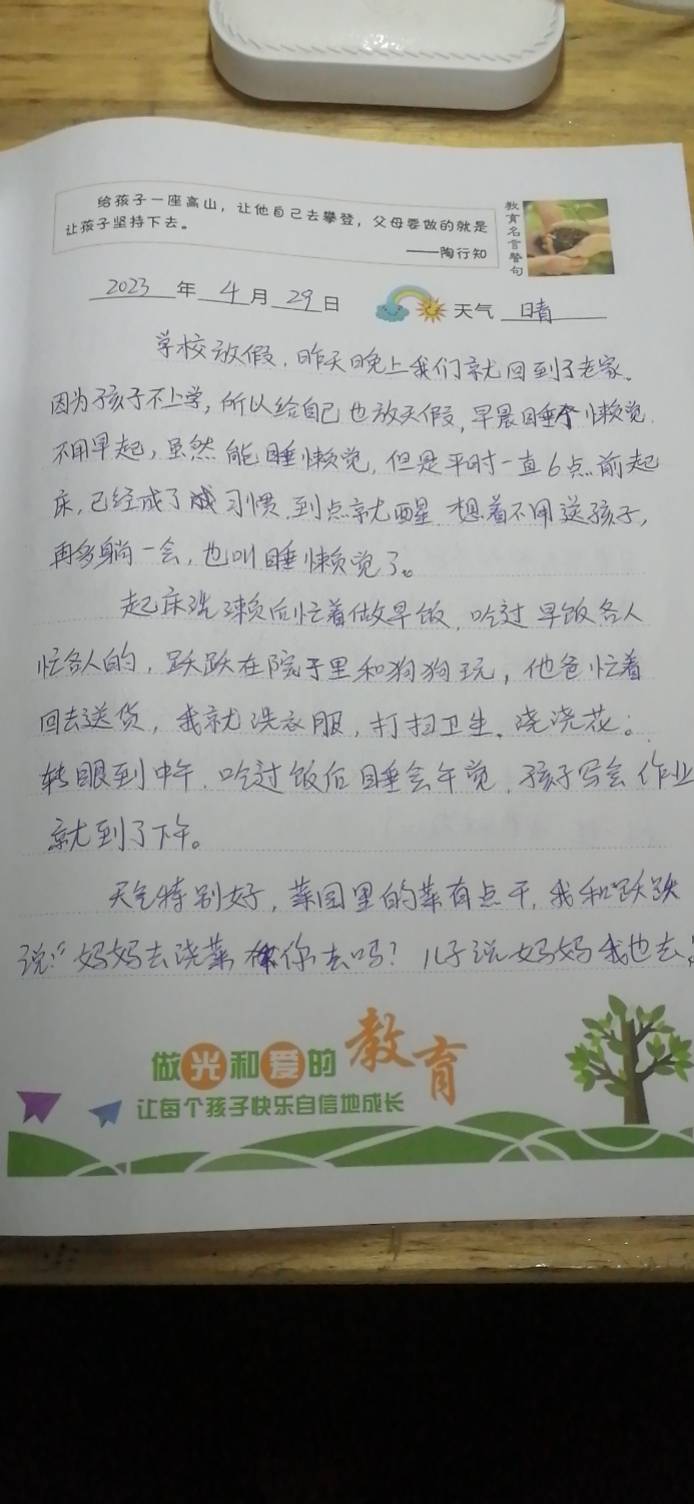 给孩子一座高山，让他自己去攀登，父母要做的就是
让孩子坚持下去。
——陶行知
教育名言警句
2023年4月29日 天气 晴
学校放假，昨天晚上我们就回到了老家。
因为孩子不上学，所以给自己也放天假，早晨睡个懒觉
不用早起，虽然能睡懒觉，但是平时一直6点前起
床，已经成了习惯，到点就醒，想着不用送孩子，
再多躺一会，也叫睡懒觉了。
起床洗濑后忙着做早饭，吃过早饭各人
忙各人的，跃跃在院子里和狗狗玩，他爸忙着
回去送货，我就洗衣服，打扫卫生，浇浇花。
转眼到中午，吃过饭后睡会午觉，孩子写会作业
就到了下午。
天气特别好，菜园里的菜有点干，我和跃跃
说：“妈妈去浇菜你去吗？儿子说妈妈我也去，
做光和爱的教育
让每个孩子快乐自信地成长